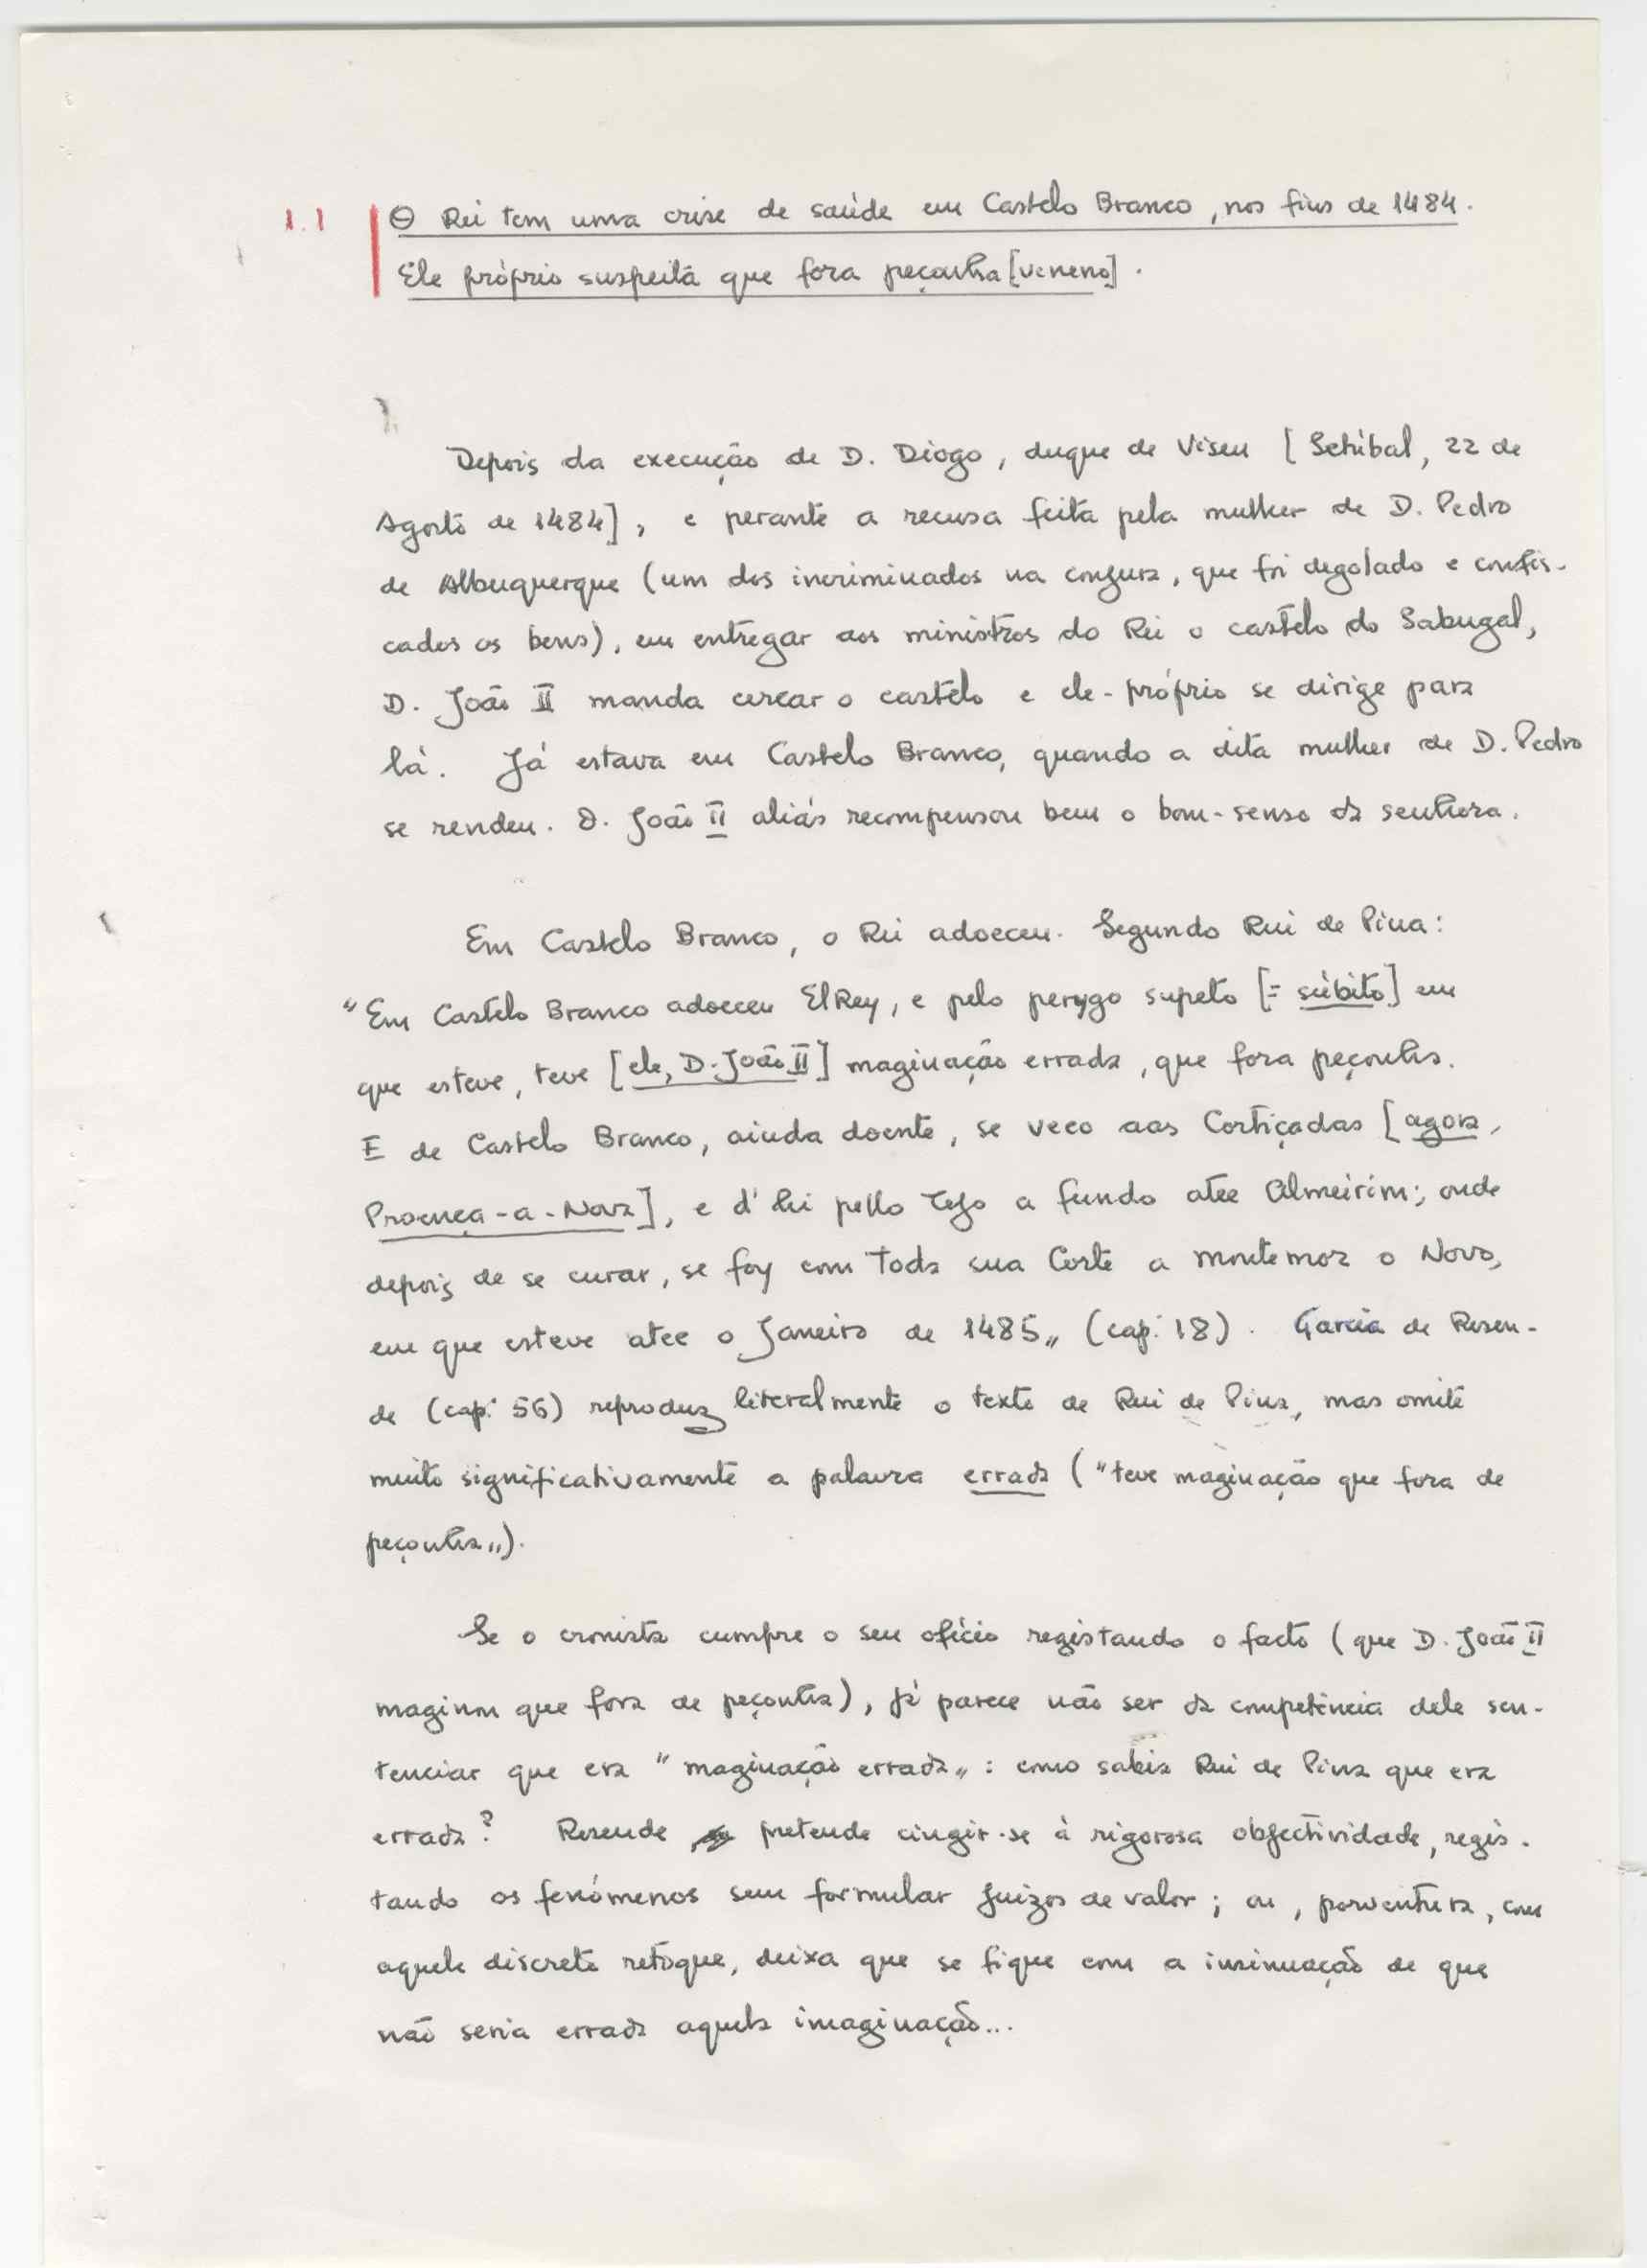 1.1 O Rei tem uma crise de saúde em Castelo Branco, nos fins de 1484.
Ele próprio suspeita que fora peçonha [veneno].
Depois da execução de D. Diogo, duque de Viseu [Setúbal, 22 de
Agosto de 1484], e perante a recusa feita pela mulher de D. Pedro
de Albuquerque (um dos incriminados na conjura, que foi degolado e confis-
cados os bens), em entregar aos ministros do Rei o castelo do Sabugal,
D. João II manda cercar o castelo e ele-próprio se dirige para
lá. Já estava em Castelo Branco, quando a dita mulher de D. Pedro
se rendeu. D. João II aliás recompensou bem o bom-senso da senhora.
Em Castelo Branco, o Rei adoeceu. Segundo Rui de Pina:
"Em Castelo Branco adoeceu ElRey, e pelo perygo supeto [= súbito] em
que esteve, teve [ele, D. João II] maginação errada, que fora peçonha.
E de Castelo Branco, ainda doente, se veeo aas Cortiçadas [agora,
Proença-a-Nova], e d'hi pello Tejo a fundo atee Almeirim; onde
depois de se curar, se foy com toda sua Corte a montemor o Novo,
em que esteve atee o Janeiro de 1485„ (cap. 18). Garcia de Resen-
de (cap. 56) reproduz literalmente o texto de Rui de Pina, mas omite
muito significativamente a palavra errada ("teve maginação que fora de
peçonha„).
Se o cronista cumpre o seu ofício registando o facto (que D. João II
maginou que fora de peçonha), já parece não ser da competência dele sen-
tenciar que era "maginação errada„: como sabia Rui de Pina que era
errada? Resende pretende cingir-se à rigorosa objectividade, regis-
tando os fenómenos sem formular juizos de valor; ou, porventura, com
aquele discreto retoque, deixa que se fique com a insinuação de que
não seria errada aquela imaginação...